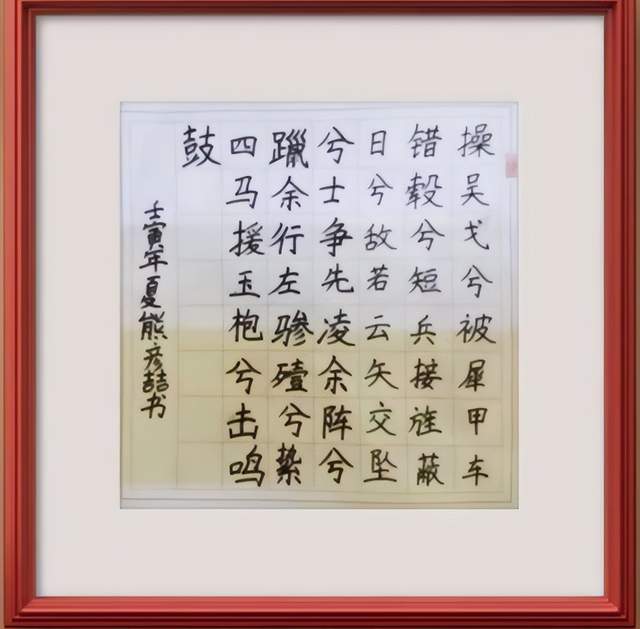 操吴戈兮被犀甲车
错毂兮短兵接旌蔽
日兮敌若云矢交坠
兮士争先凌余阵兮
躐余行左骖殪兮絷
四马援玉枹兮击鸣
鼓
壬寅年夏熊彦喆书